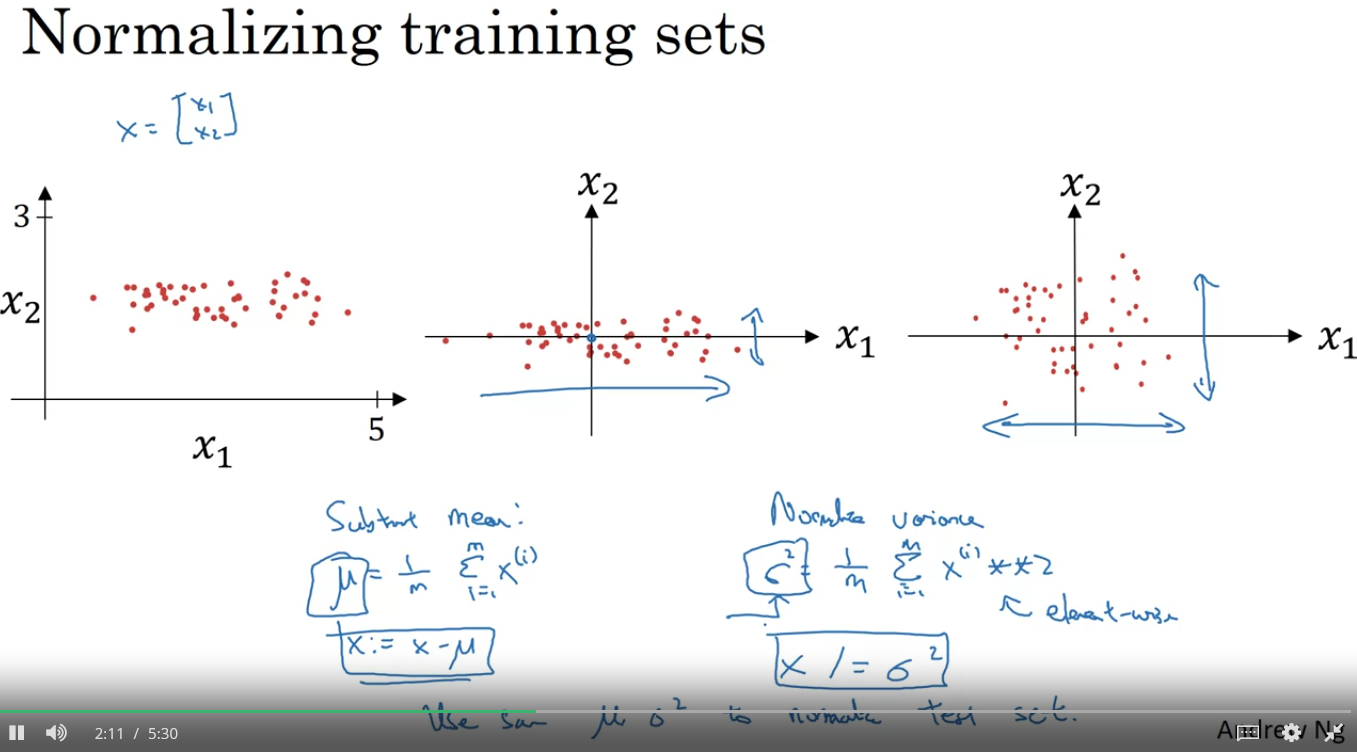 Normalizing training sets
x = [x1 x2]
3
x2
5
x1
x2
x1
x2
x1
Subtract mean:
μ = 1/m Σ i=1 m x(i)
x := x - μ
Normalize variance
σ² = 1/m Σ i=1 m x(i) **2
↖ element-wise
x /= σ²
Use same μ σ² to normalize test set.
2:11 / 5:30
Andrew Ng